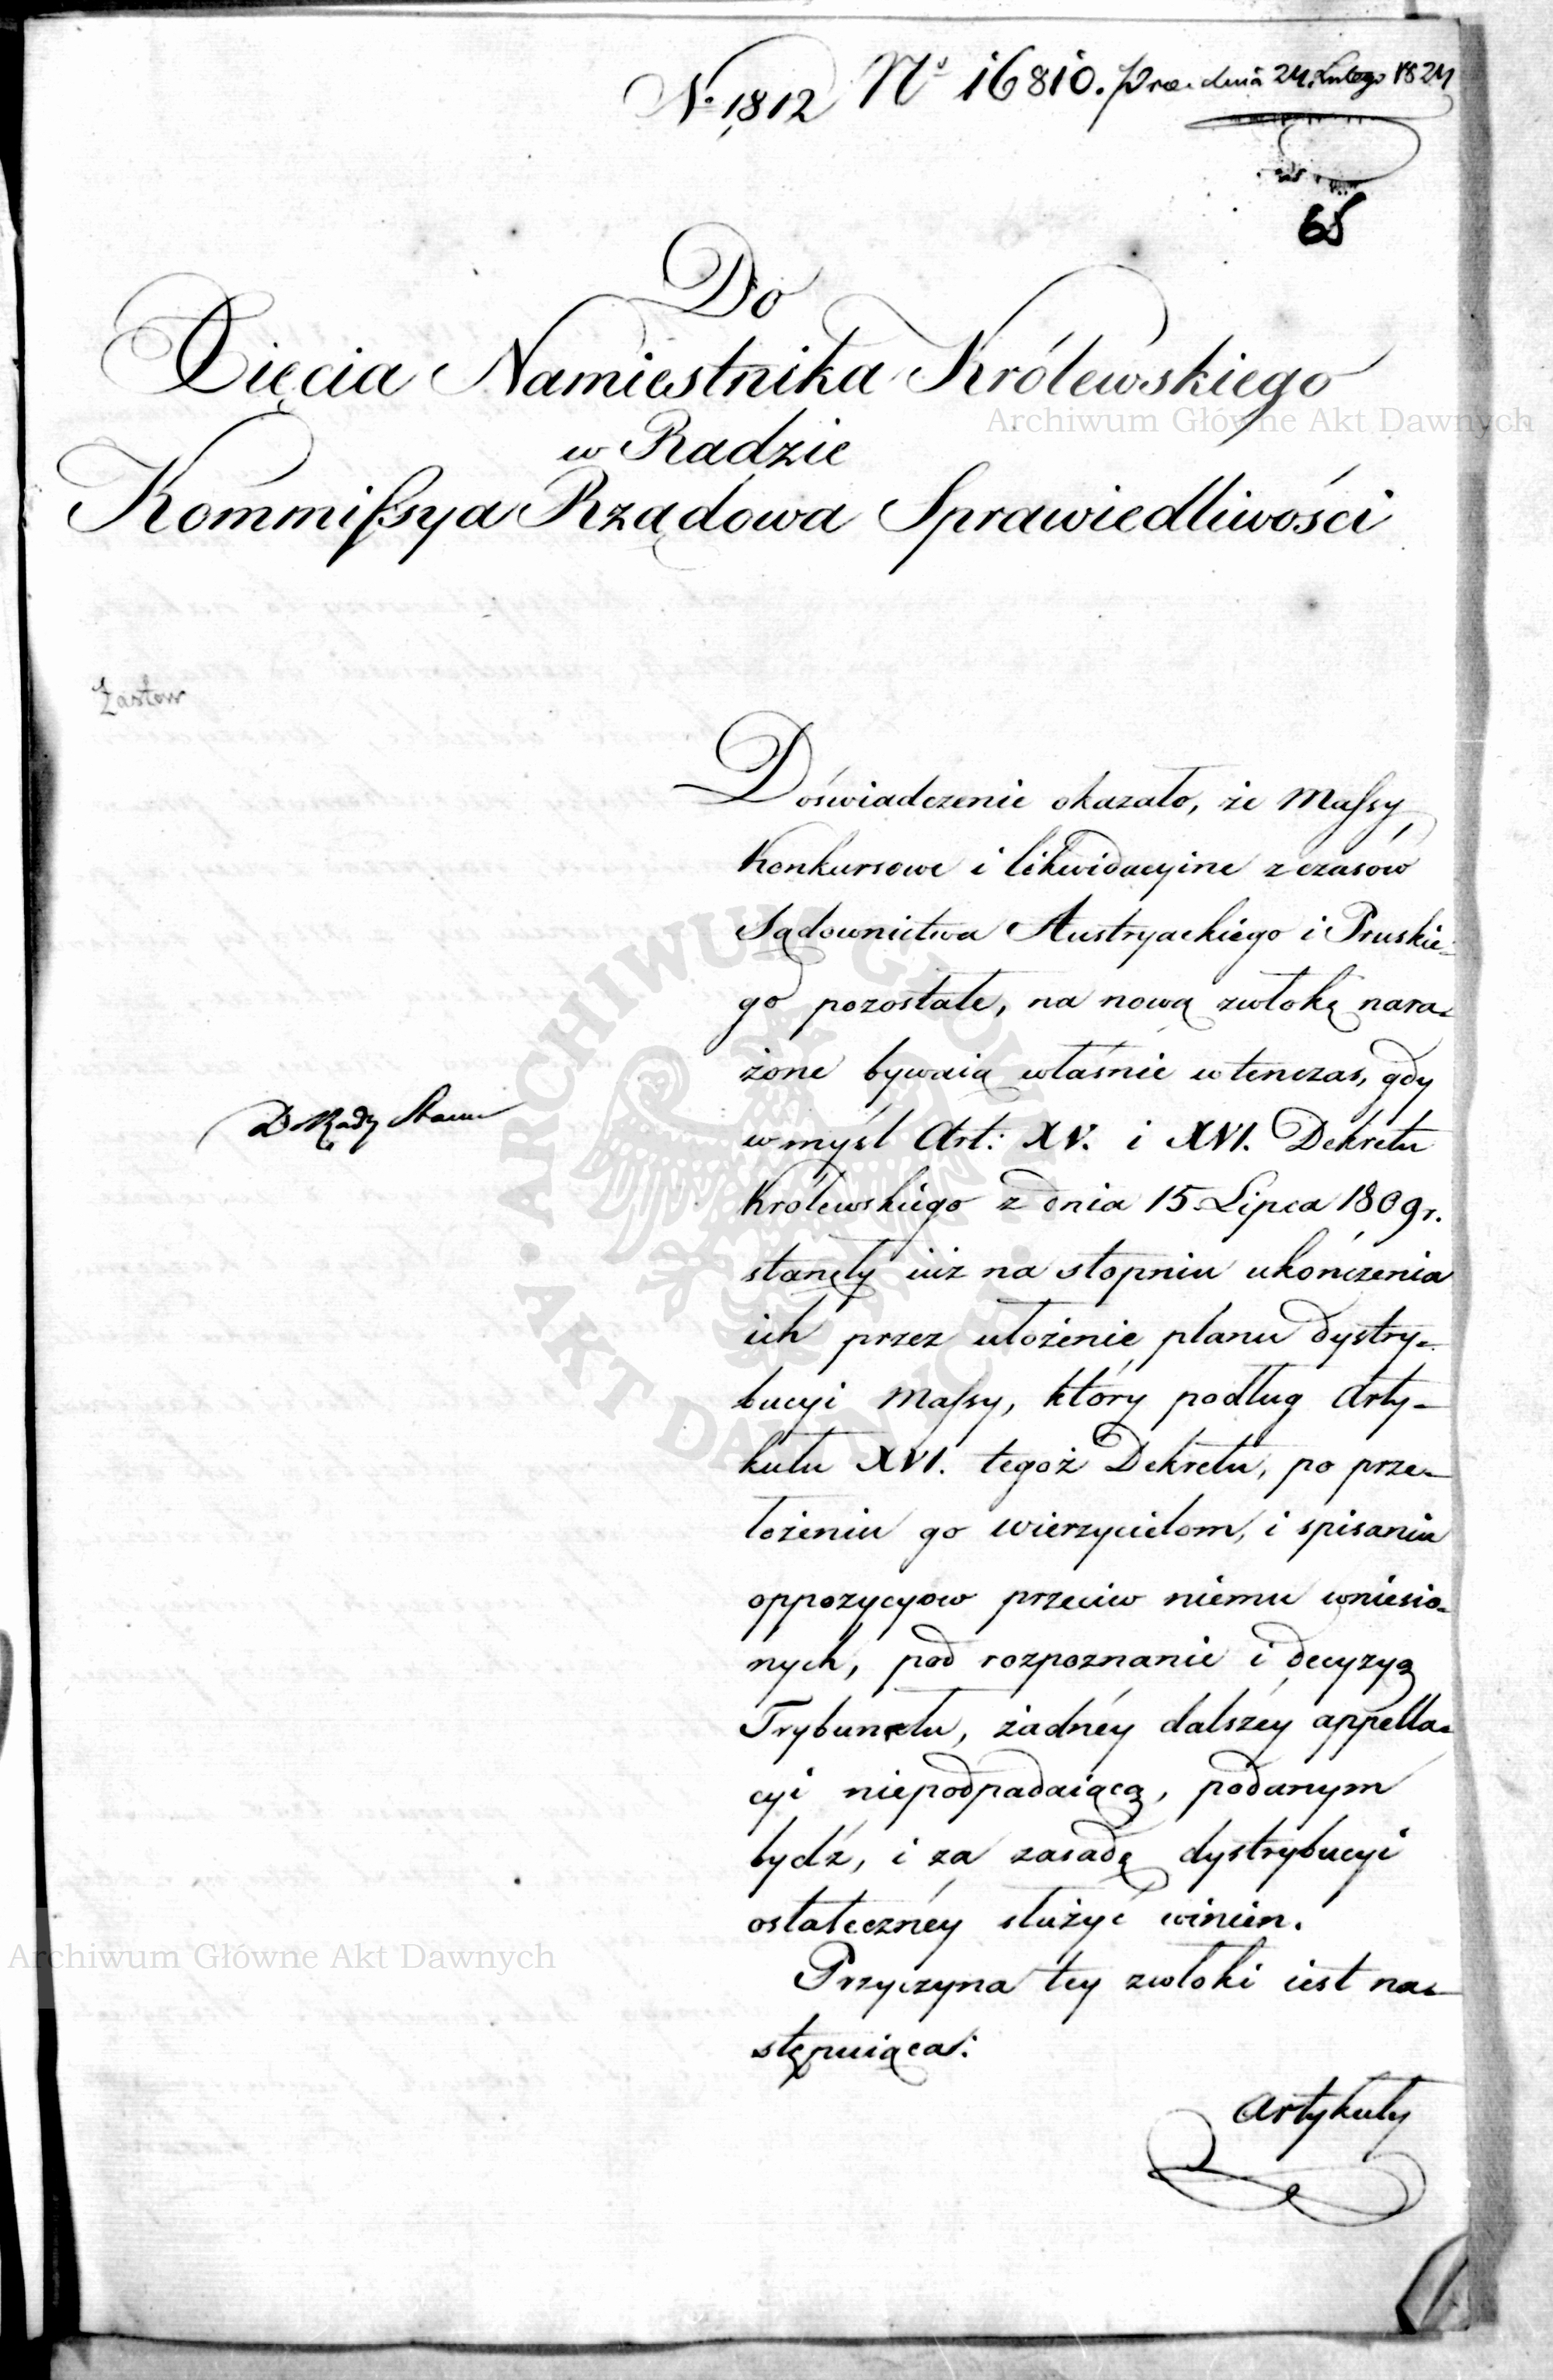 No 1812 No 16810. Prae. dnia 24. Lutego 1824
65
Do
Xięcia Namiestnika Królewskiego
w Radzie
Kommissya Rządowa Sprawiedliwości
Archiwum Główne Akt Dawnych
Doświadczenie okazało, że Massy
Konkursowe i likwidacyine z czasów
Sądownictwa Austryackiego i Pruskie-
go pozostałe, na nową zwłokę nara-
żone bywaią właśnie wtenczas, gdy
w myśl Art: XV. i XVI. Dekretu
Królewskiego z dnia 15 Lipca 1809 r.
stanęły iuż na stopniu ukończenia
ich przez ułożenie planu dystry-
bucyi Massy, który podług Arty-
kułu XVI. tegoż Dekretu, po prze-
łożeniu go wierzycielom, i spisaniu
oppozycyow przeciw niemu wniesio-
nych, pod rozpoznanie i decyzyą
Trybunału, żadnéy dalszéy appella-
cyi niepodpadaiącą, podanym
bydź, i za zasadę dystrybucyi
ostatecznéy służyć winien.
Przyczyna tey zwłoki iest na-
stępuiąca:
Artykuły
Do Rady Stanu
ARCHIWUM GŁÓWNE AKT DAWNYCH
Archiwum Główne Akt Dawnych